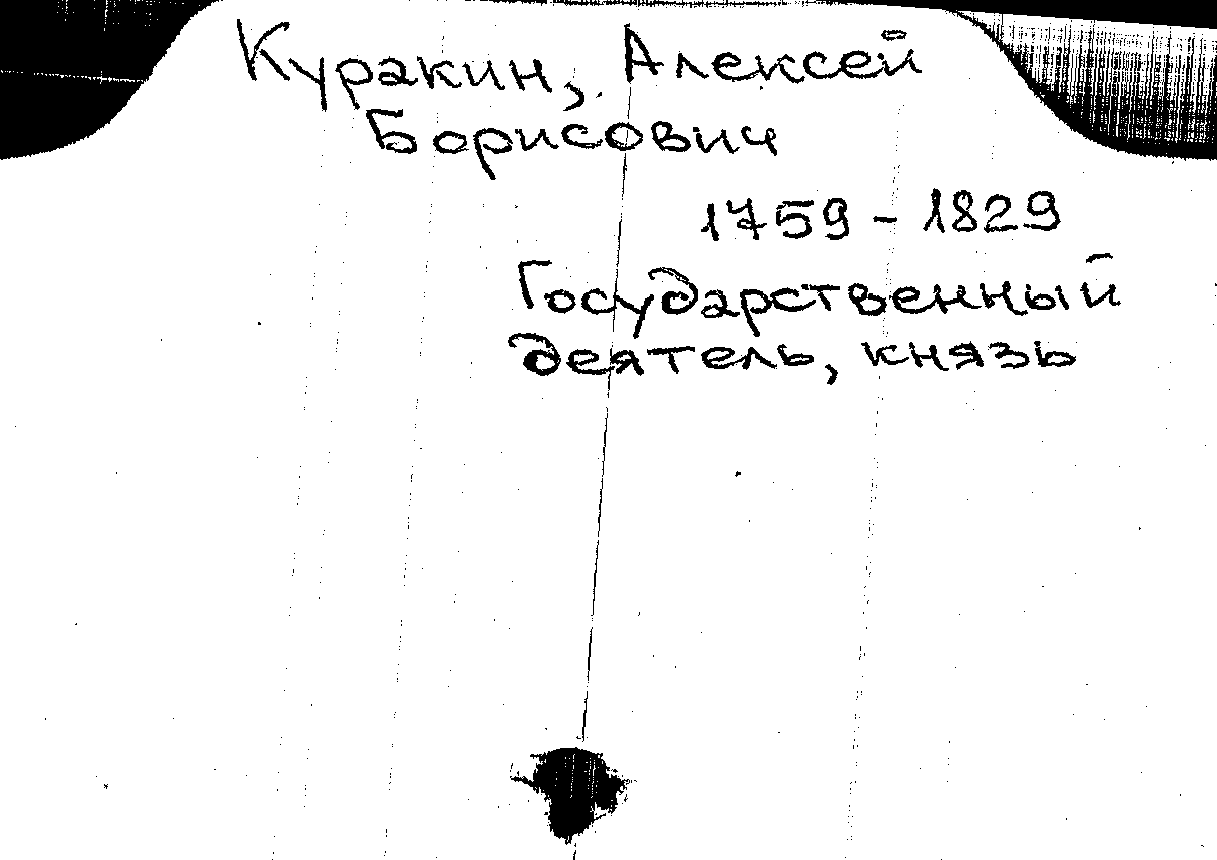 Куракин, Алексей
Борисович
1759 - 1829
Государственный
деятель, князь